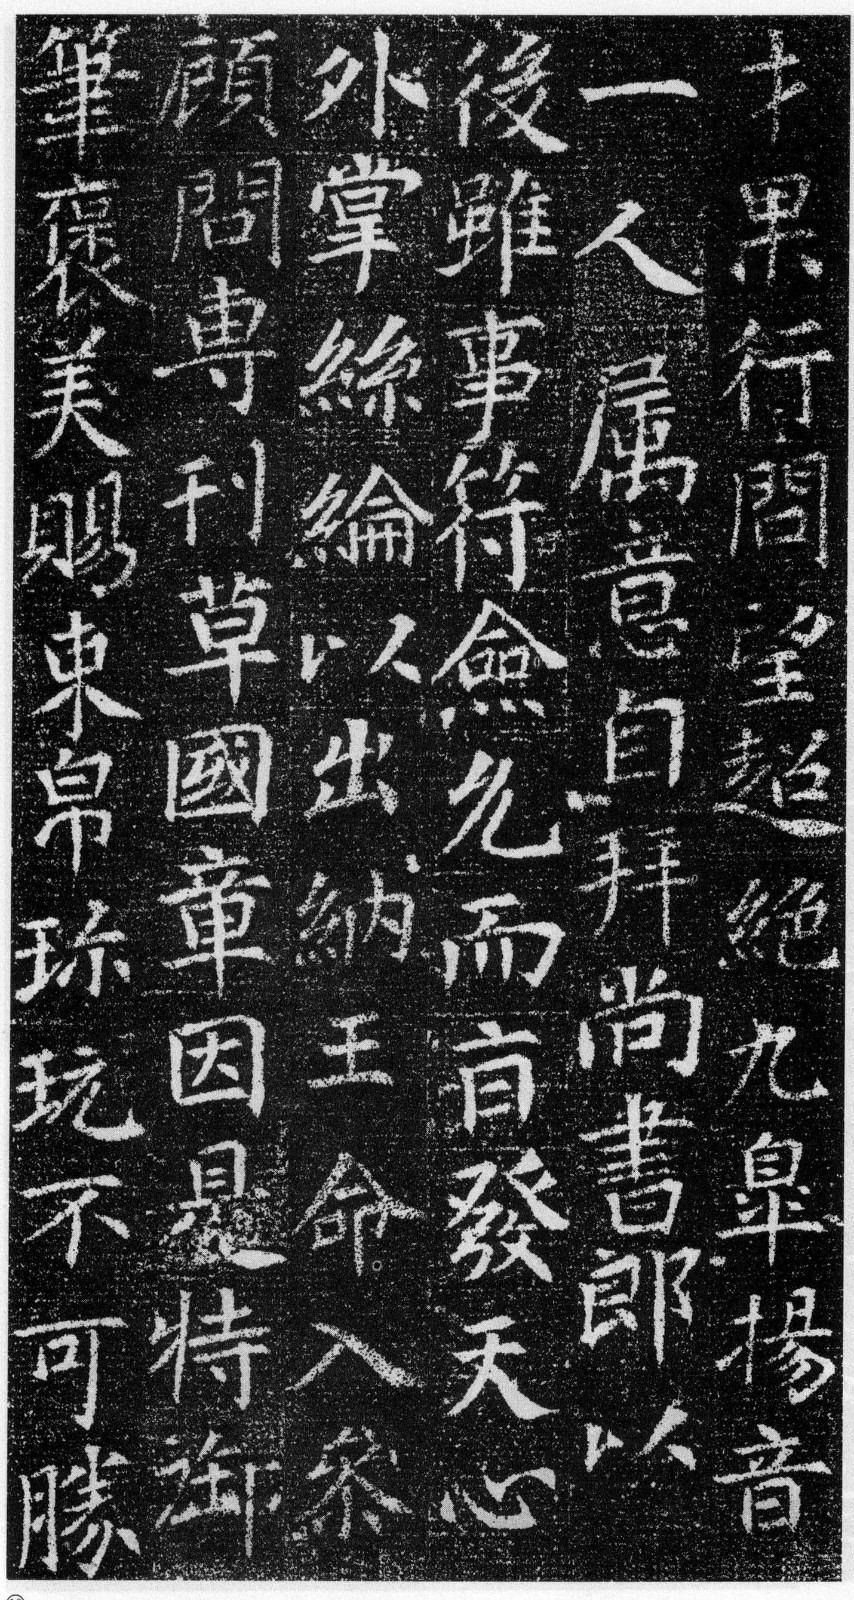 才果行問望超絶九皐揚音
一人属意自拜尚書郎以
後雖事符僉允而盲發天心
外掌絲綸以出納王命入叅
顧問専刊草國章因是特御
筆褒美賜束帛珎玩不可勝